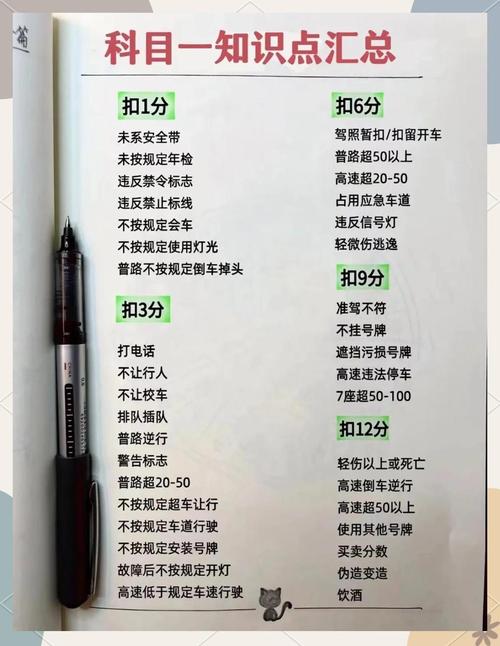 篇
科目一知识点汇总
扣1分
未系安全带
未按规定年检
违反禁令标志
违反禁止标线
不按规定会车
不按规定使用灯光
普路不按规定倒车掉头
扣3分
打电话
不让行人
不让校车
排队插队
普路逆行
警告标志
普路超20-50
不按规定超车让行
不按规定车道行驶
不按规定安装号牌
故障后不按规定开灯
高速低于规定车速行驶
扣6分
驾照暂扣/扣留开车
普路超50以上
高速超20-50
占用应急车道
违反信号灯
轻微伤逃逸
扣9分
准驾不符
不挂号牌
遮挡污损号牌
高速违法停车
7座超50-100
扣12分
轻伤以上或死亡
高速倒车逆行
高速超50以上
使用其他号牌
买卖分数
伪造变造
饮酒